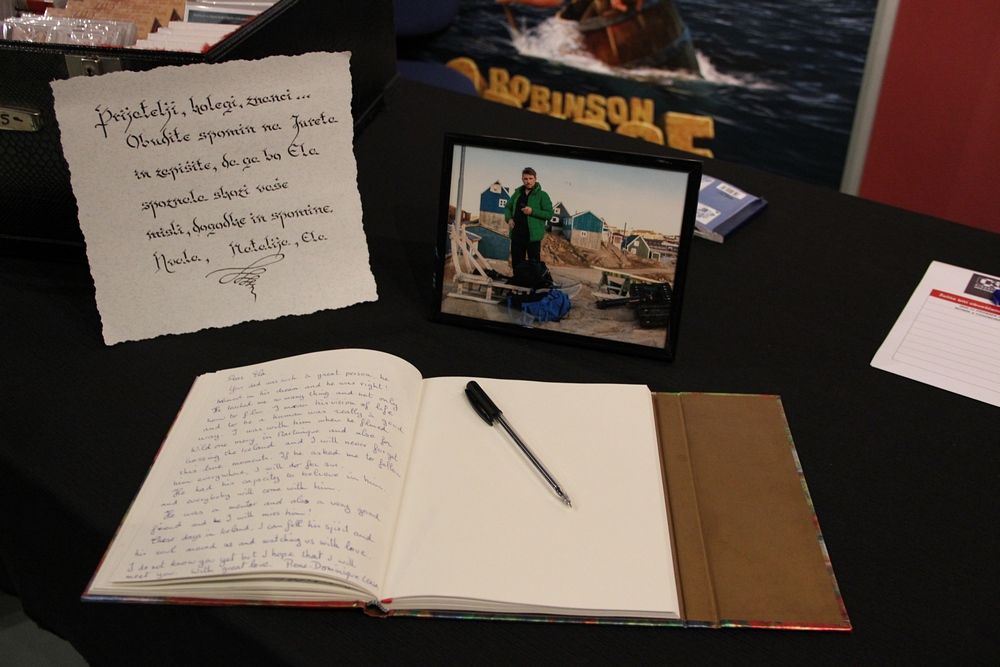 Prijatelji, kolegi, znanci...
Obudite spomin na Jureta
in zapišite, da ga bo Ela
spoznala skozi vaše
misli, dogodke in spomine.
Hvala, Natalija, Ela
ROBINSON
Dear Ela,
Your dad was such a great person he
believed in his dream and he was right!
He tauled me so many thing and not only
how to film. I mean his vision of life
and to be a human was really a good
way. I was with him when he filmed
Wild one mory in Martinique and also for
crossing the Iceland and I will never forget
this love moments. If he asked me to follow
him everywhere, I will do for sur.
He had his capacity to believe in him.
and everybody will come with him.
He was a mentor and also a very good
friend and I will miss him!
These days in Iceland, I can fell his spirit and
his soul around us and watching us with love
I do not know you yet but I hope that I will
meet you. With great love. Pierre-Dominique